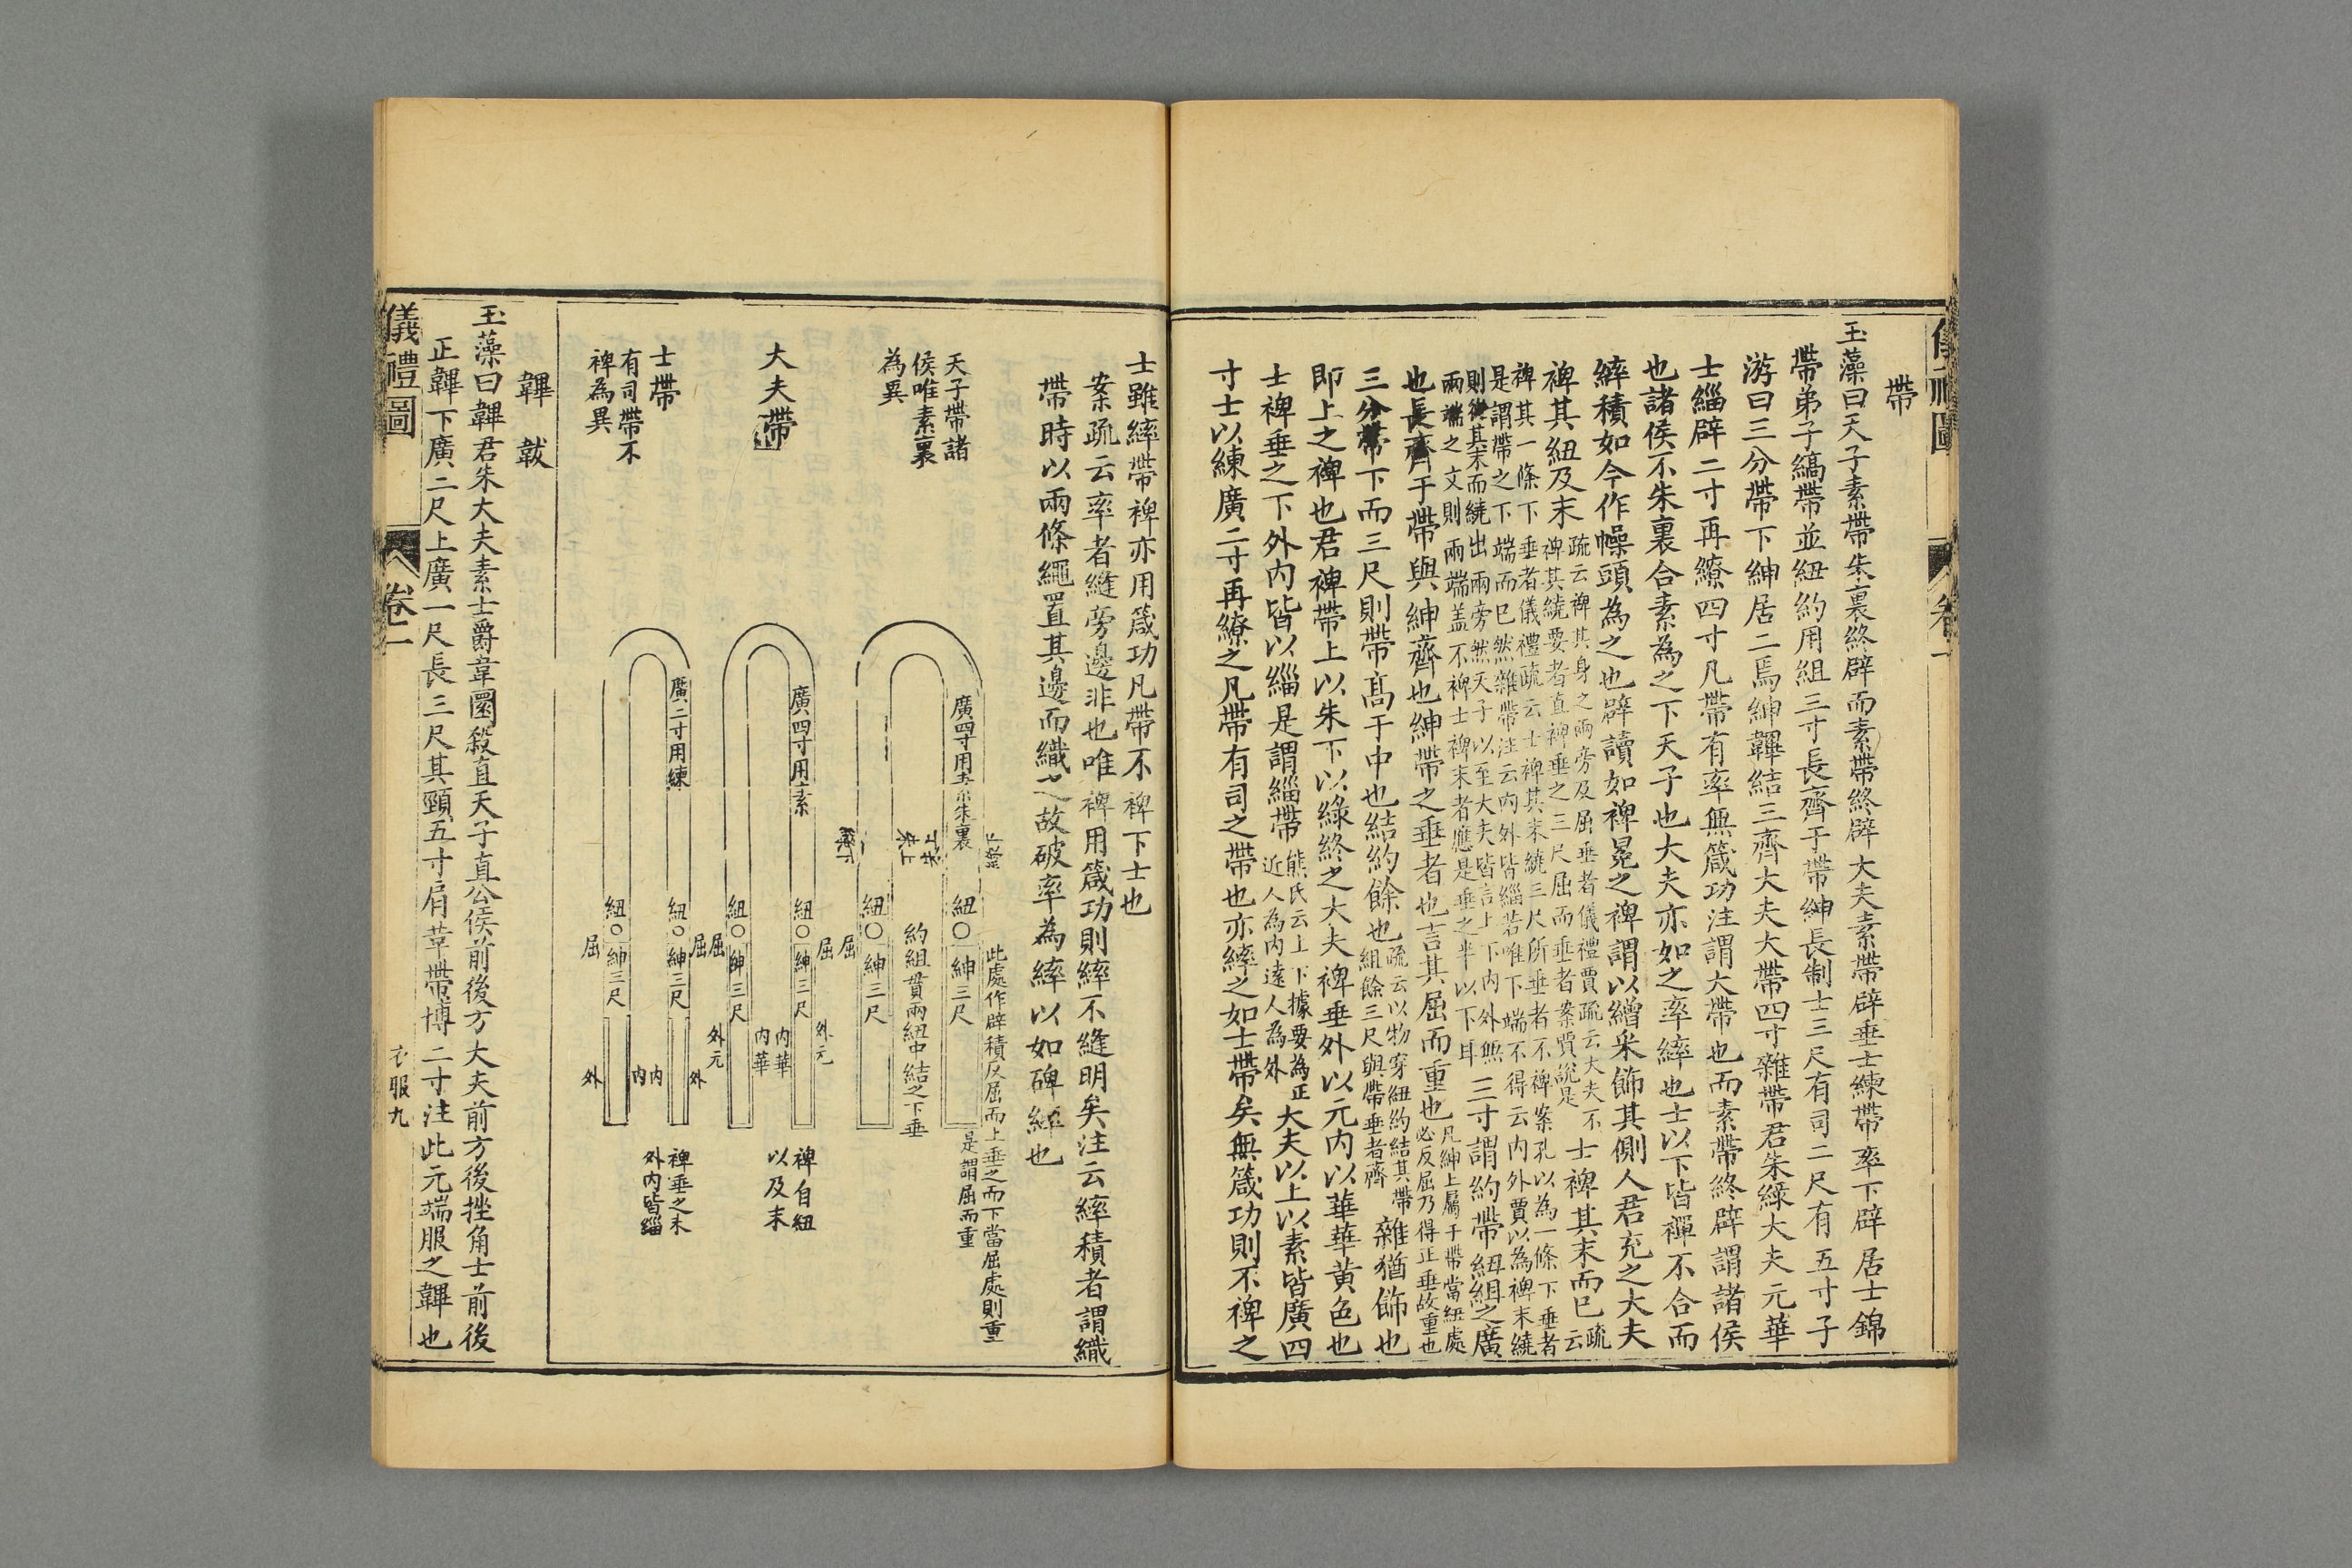 帶
玉藻曰天子素帶朱裏終辟而素帶終辟大夫素帶辟垂士練帶率下辟居士錦
帶弟子縞帶並紐約用組三寸長齊于帶紳長制士三尺有司二尺有五寸子
游曰三分帶下紳居二焉紳韠結三齊大夫大帶四寸雜帶君朱綠大夫元華
士緇辟二寸再繚四寸凡帶有率無箴功注謂大帶也而素帶終辟謂諸侯
也諸侯不朱裏合素為之下天子也大夫亦如之率繂也士以下皆禪不合而
繂積如今作幧頭為之也辟讀如裨冕之裨謂以繒采飾其側人君充之大夫
裨其紐及末
疏云裨其身之兩旁及屈垂者儀禮賈疏云大夫不
裨其繞要者直裨垂之三尺屈而垂者案賈說是
士裨其末而已
疏
云
裨其一條下垂者儀禮疏云士裨其末繞三尺所垂者不裨案孔以為一條下垂者
是謂帶之下端而已然雜帶注云內外皆緇若唯下端不得云內外賈以為裨末繞
則從其末而繞出兩旁然天子以至大夫皆言上下內外無
兩端之文則兩端盖不裨士裨末者應是垂之半以下耳
三寸謂約帶紐組之廣
也長齊于帶與紳齊也紳帶之垂者也言其屈而重也
凡紳上屬于帶當紐處
必反屈乃得正垂故重也
三分帶下而三尺則帶髙于中也結約餘也
疏云以物穿紐約結其帶
組餘三尺與帶垂者齊
雜猶飾也
即上之裨也君裨帶上以朱下以綠終之大夫裨垂外以元內以華華黄色也
士裨垂之下外內皆以緇是謂緇帶
熊氏云上下據要為正
近人為內遠人為外
大夫以上以素皆廣四
寸士以練廣二寸再繚之凡帶有司之帶也亦繂之如士帶矣無箴功則不裨之
士雖繂帶裨亦用箴功凡帶不裨下士也
案疏云率者縫旁邊非也唯裨用箴功則繂不縫明矣注云繂積者謂織
帶時以兩條繩置其邊而織之故破率為繂以如碑繂也
天子帶諸
侯唯素裏
為異
廣四寸用素朱裏
紐
紳三尺
紐
紳三尺
約組貫兩紐中結之下垂
此處作辟積反屈而上垂之而下當屈處則重
是謂屈而重
屈
大夫帶
廣四寸用素
紐
紳三尺
紐
紳三尺
屈
屈
外元
內華
內華
外元
裨自紐
以及末
士帶
有司帶不
裨為異
廣二寸用練
紐
紳三尺
紐
紳三尺
屈
屈
外
內
內
外
裨垂之末
外內皆緇
韠 韍
玉藻曰韠君朱大夫素士爵韋圜殺直天子直公侯前後方大夫前方後挫角士前後
正韠下廣二尺上廣一尺長三尺其頸五寸肩革帶博二寸注此元端服之韠也
儀禮圖
卷一
衣服九